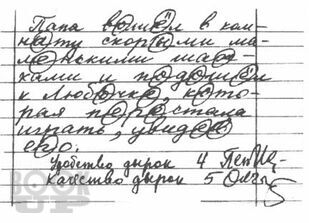 Папа вошёл в ком-
нату скорыми ма-
ленькими шаж-
ками и подошёл
к Любочке, кото-
рая перестала
играть, увидев
его.
4
качество дырок 5